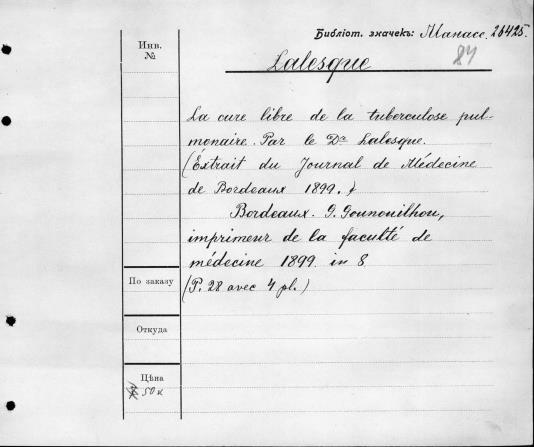 Библіот. значекъ: Манасс. 26425.
84
Инв.
№
Lalesque
La cure libre de la tuberculose pul-
monaire. Par le Dr Lalesque.
(Extrait du Journal de Médecine
de Bordeaux 1899.)
Bordeaux. G. Gounouilhou,
imprimeur de la faculté de
médecine 1899. in 8
(P. 28 avec 4 pl.)
По заказу
Откуда
Цѣна
50 к